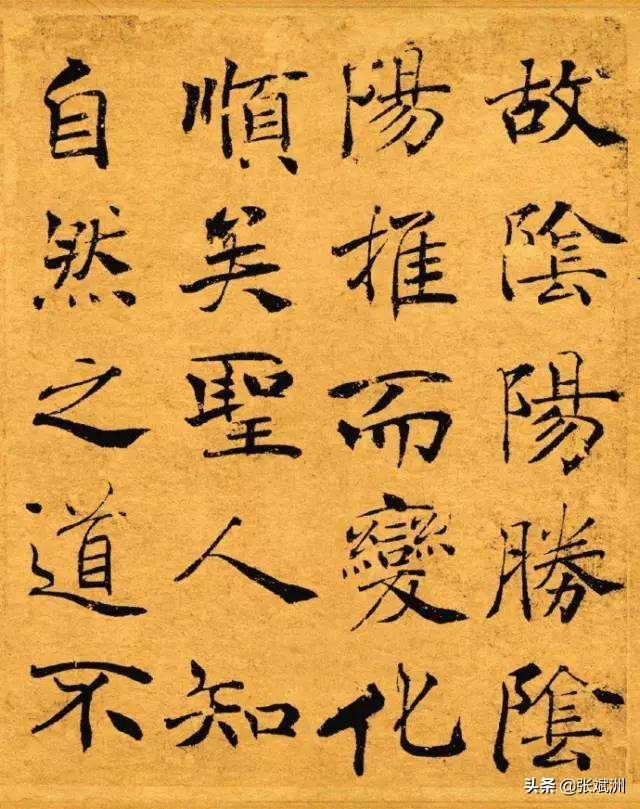 故陰陽勝陰
陽推而變化
順矣聖人知
自然之道不
头条 @张斌洲